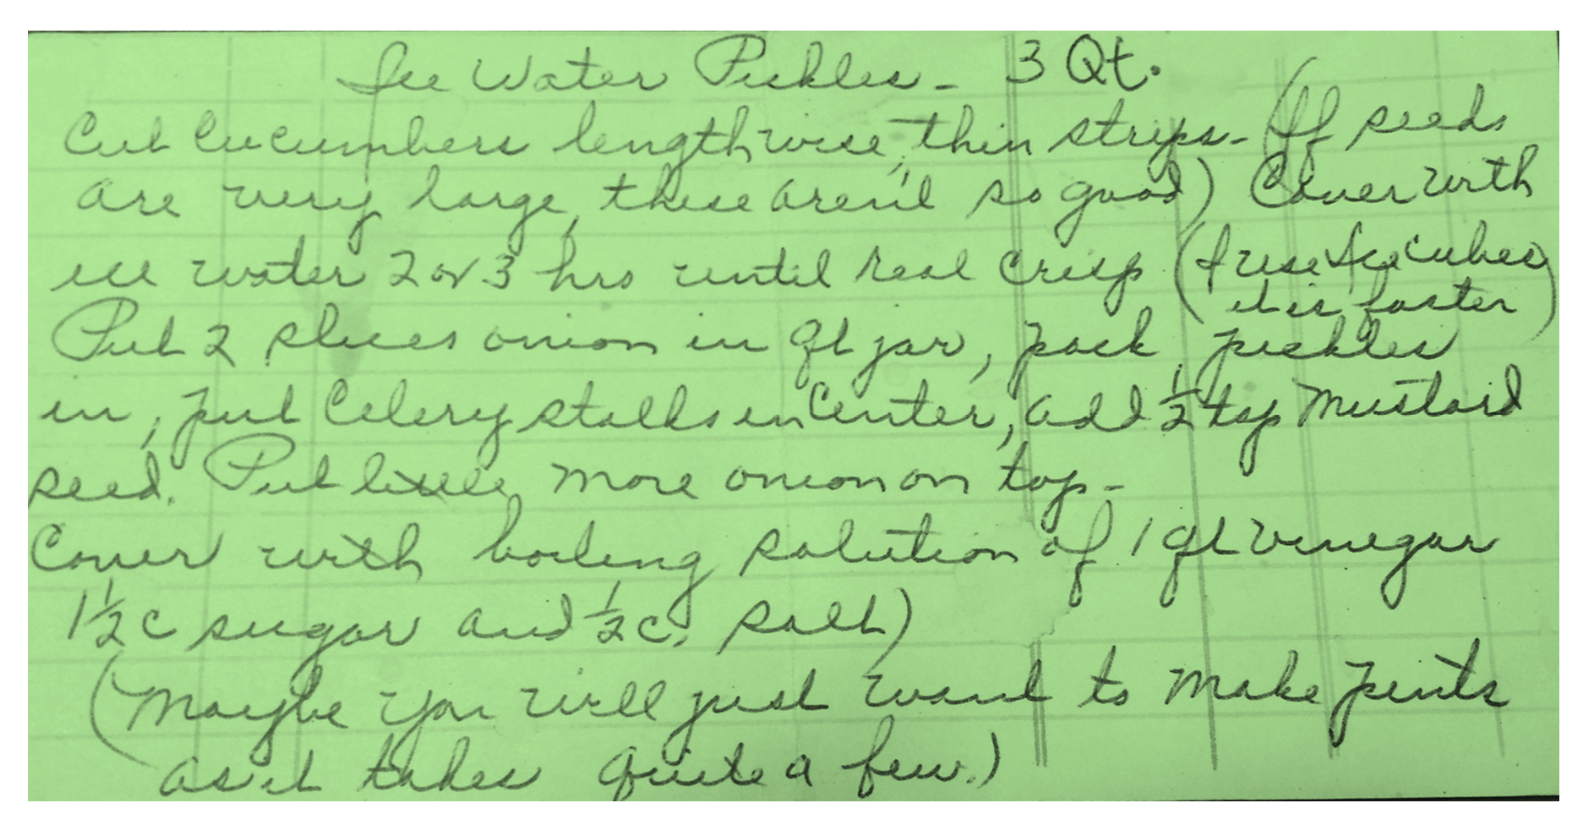 Ice Water Pickles - 3 Qt.
Cut Cucumbers lengthwise, thin strips - (If seeds
are very large, these aren't so good) Cover with
ice water 2 or 3 hrs until real crisp (I use Ice cubes
it is faster)
Put 2 slices onion in qt jar, pack pickles
in, put Celery stalks in Center, add ½ tsp Mustard
seed. Put little more onion on top -
Cover with boiling solution of 1 qt vinegar
1½ c sugar and ½ c. salt)
(Maybe you will just want to make pints
as it takes quite a few.)